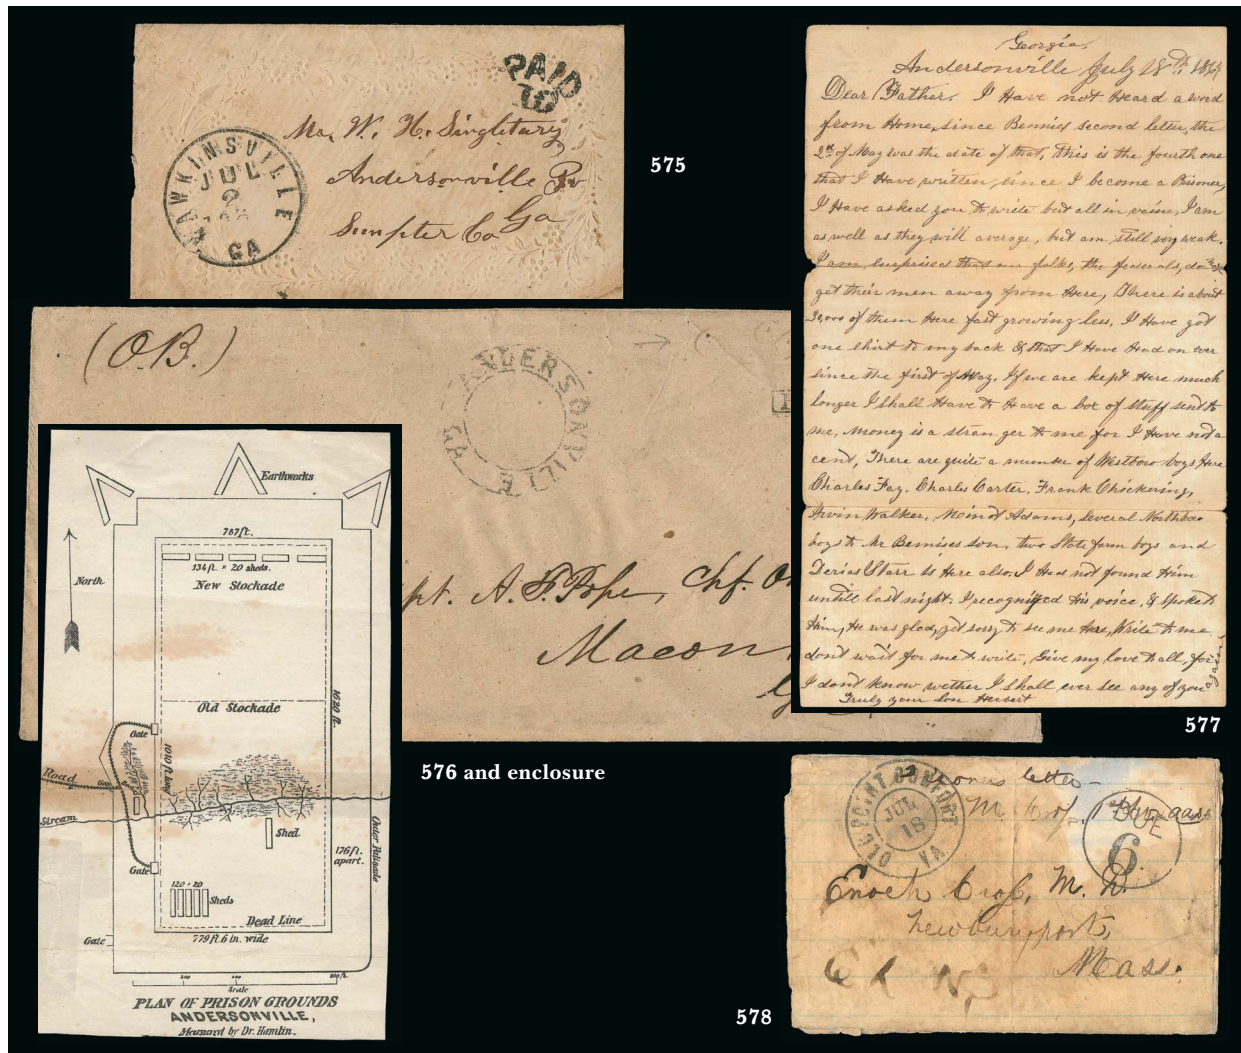 PAID
10
HAWKINSVILLE
JUL
2
GA
Mr. W. H. Singletary
Andersonville
Sumpter Co Ga
575
(O.B.)
ANDERSONVILLE
GA
A. F. Pope, Chf.
Macon
576 and enclosure
Earthworks
767 ft.
134 ft. × 20 sheds.
New Stockade
North
Old Stockade
1620 ft.
Gate
1010 ft. long
Road
Stream
Shed
176 ft.
apart.
Outer Palisade
Gate
120 × 20
Sheds
Dead Line
Gate
779 ft. 6 in. wide
Scale
PLAN OF PRISON GROUNDS
ANDERSONVILLE,
Measured by Dr. Hamlin.
Georgia,
Andersonville July 18th. 1864
Dear Father. I Have not Heard a word
from Home, since Bennies second letter, the
2nd of May was the date of that, this is the fourth one
that I Have written, since I become a Prisoner,
I Have asked you to write but all in vain, I am
as well as they will average, but am still very weak.
I am surprised that our folks, the federals, dont
get their men away from Here, There is about
30,000 of them Here fast growing less, I Have got
one shirt to my back & that I Have Had on ever
since the first of May. If we are kept Here much
longer I shall Have to Have a box of stuff sent to
me, Money is a stranger to me for I Have not a
cent, There are quite a number of Westboro boys Here
Charles Fay. Charles Carter. Frank Chickering,
Irvin Walker, Adams, several Northboro
boys to Mr Bemises son, two State farm boys and
Starr is Here also. I Had not found Him
untill last night, I recognized His voice, & spoke to
Him, He was glad, yet sorry to see me Here, Write to me
dont wait for me to write, Give my love to all, for
I dont know wether I shall ever see any of you again
Truly your Son Herbert
577
letter
OLD POINT COMFORT
JUL
18
VA
DUE
6
Enoch Cross, M. D.
Newburyport,
Mass.
578